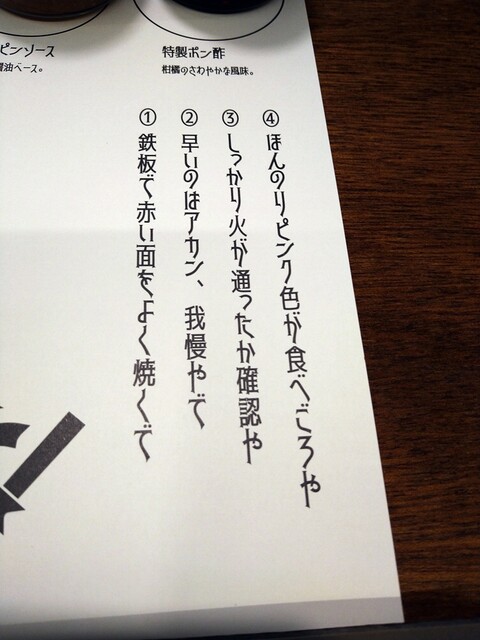 特製ポン酢
柑橘のさわやかな風味。
ピンソース
油ベース。
①鉄板で赤い面をよく焼くで
②早いのはアカン、我慢やで
③しっかり火が通ったか確認や
④ほんのりピンク色が食べごろや